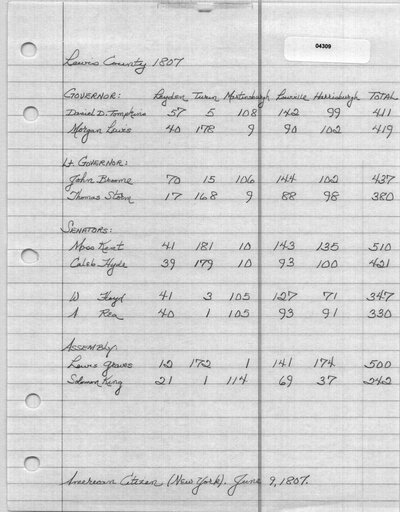 04309
Lewis County 1807
GOVERNOR: Leyden Turin Martinsburgh Lowville Harrisburgh TOTAL
Daniel D. Tompkins 57 5 108 142 99 411
Morgan Lewis 40 178 9 90 102 419
Lt. GOVERNOR:
John Broome 70 15 106 144 102 437
Thomas Storm 17 168 9 88 98 380
SENATORS:
Moss Kent 41 181 10 143 135 510
Caleb Hyde 39 179 10 93 100 421
W Floyd 41 3 105 127 71 347
A Rea 40 1 105 93 91 330
ASSEMBLY:
Lewis Graves 12 172 1 141 174 500
Solomon King 21 1 114 69 37 242
American Citizen (New York). June 9, 1807.